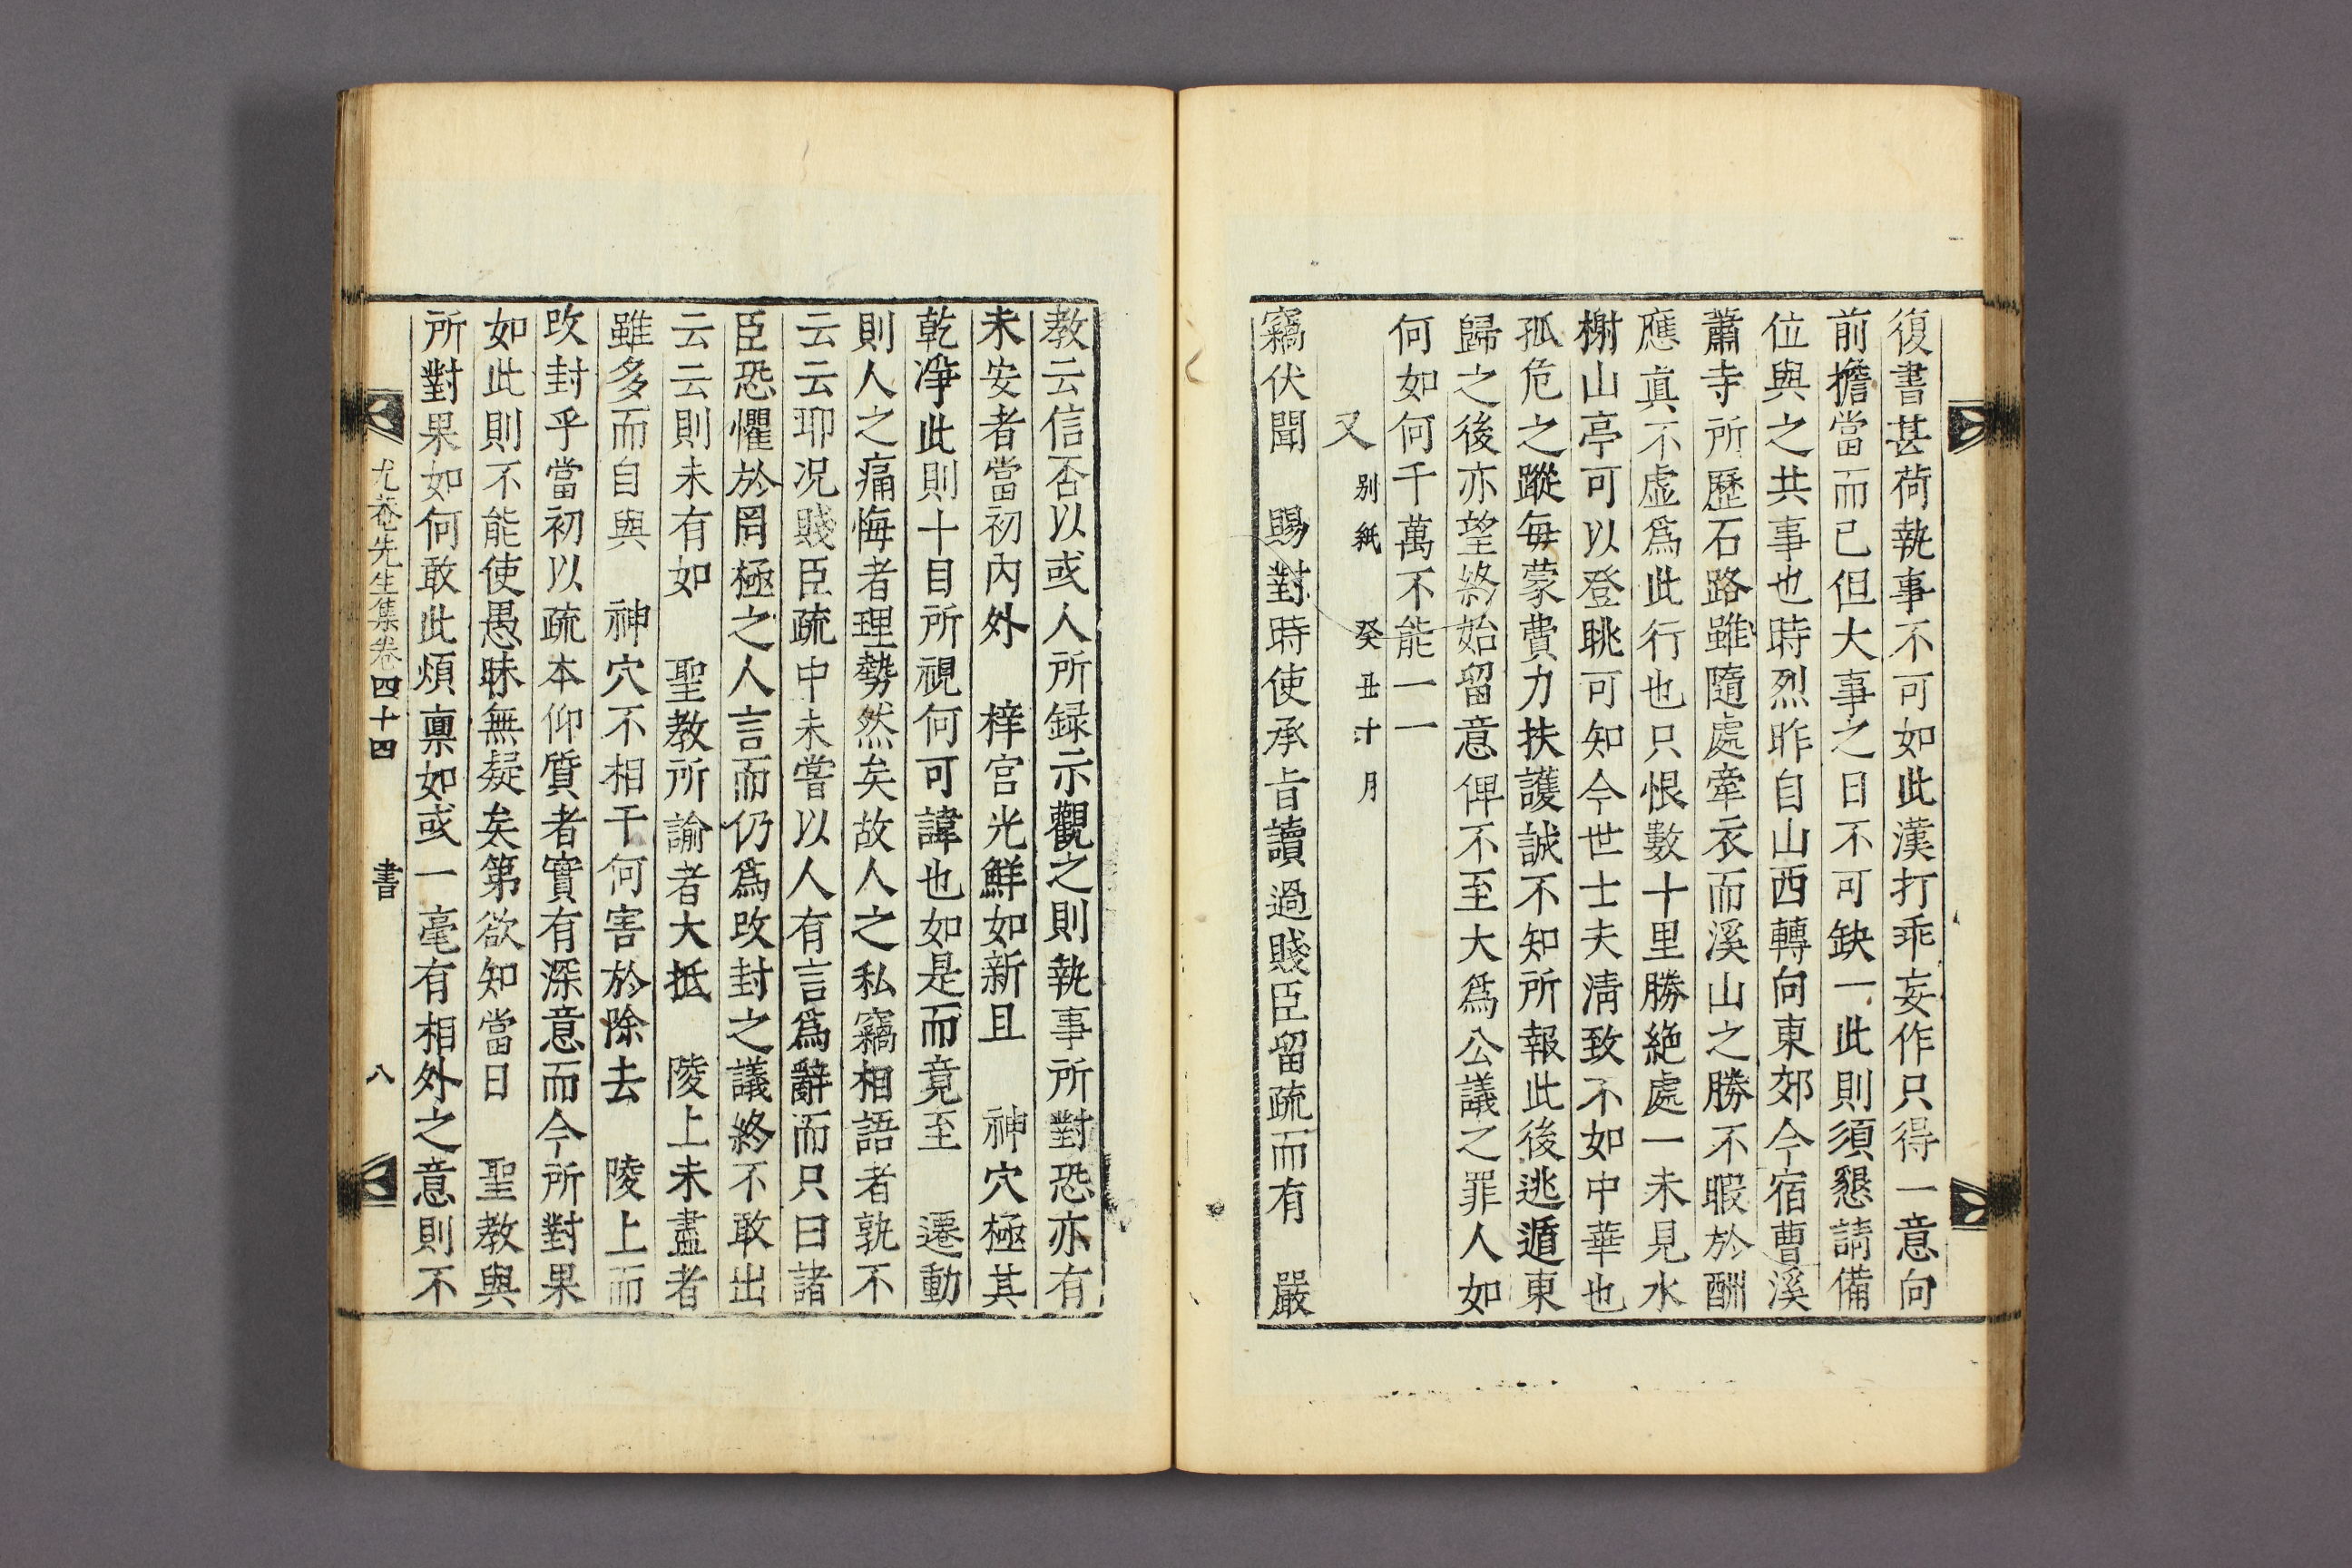 復書甚荷執事不可如此漢打乖妄作只得一意向
前擔當而已但大事之日不可缺一此則須懇請備
位與之共事也時烈昨自山西轉向東郊今宿曹溪
蕭寺所歷石路雖隨處牽衣而溪山之勝不暇於酬
應眞不虛爲此行也只恨數十里勝絶處一未見水
榭山亭可以登眺可知今世士夫淸致不如中華也
孤危之蹤每蒙費力扶護誠不知所報此後逃遁東
歸之後亦望終始留意俾不至大爲公議之罪人如
何如何千萬不能一一
又 別紙 癸丑十月
竊伏聞 賜對時使承旨讀過賤臣留疏而有 嚴
教云信否以或人所録示觀之則執事所對恐亦有
未安者當初內外 梓宮光鮮如新且 神穴極其
乾凈此則十目所視何可諱也如是而竟至 遷動
則人之痛悔者理勢然矣故人之私竊相語者孰不
云云耶况賤臣疏中未嘗以人有言爲辭而只曰諸
臣恐懼於罔極之人言而仍爲改封之議終不敢出
云云則未有如 聖教所諭者大抵 陵上未盡者
雖多而自與 神穴不相干何害於除去 陵上而
改封乎當初以疏本仰質者實有深意而今所對果
如此則不能使愚昧無疑矣第欲知當日 聖教與
所對果如何敢此煩稟如或一毫有相外之意則不
尤菴先生集卷四十四 書 八